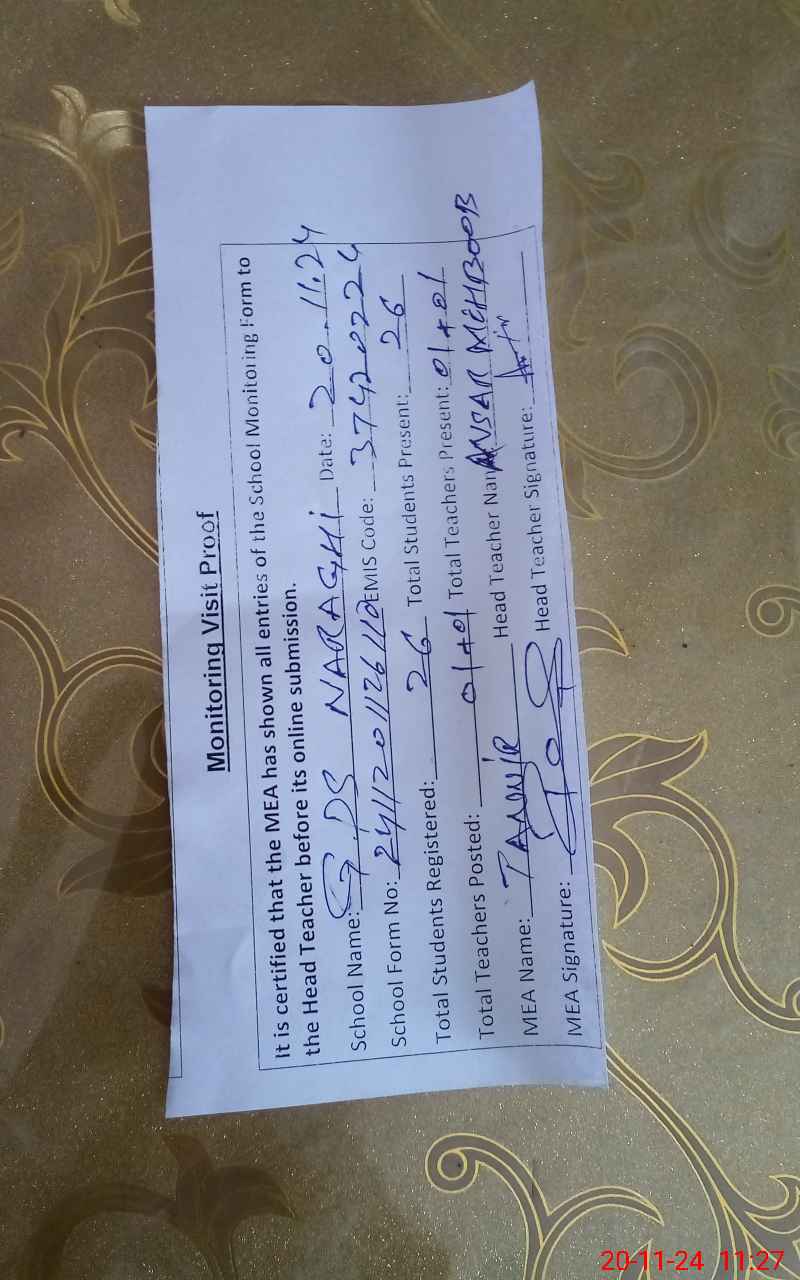 Monitoring Visit Proof
It is certified that the MEA has shown all entries of the School Monitoring Form to
the Head Teacher before its online submission.
School Name: GPS NARAGHI Date: 20.11.24
School Form No: EMIS Code: 37420224
Total Students Registered: 26 Total Students Present: 26
Total Teachers Posted: 01+01 Total Teachers Present: 01+01
MEA Name: Head Teacher Name ANSAR MEHBOOB
MEA Signature: Head Teacher Signature:
20-11-24 11:27